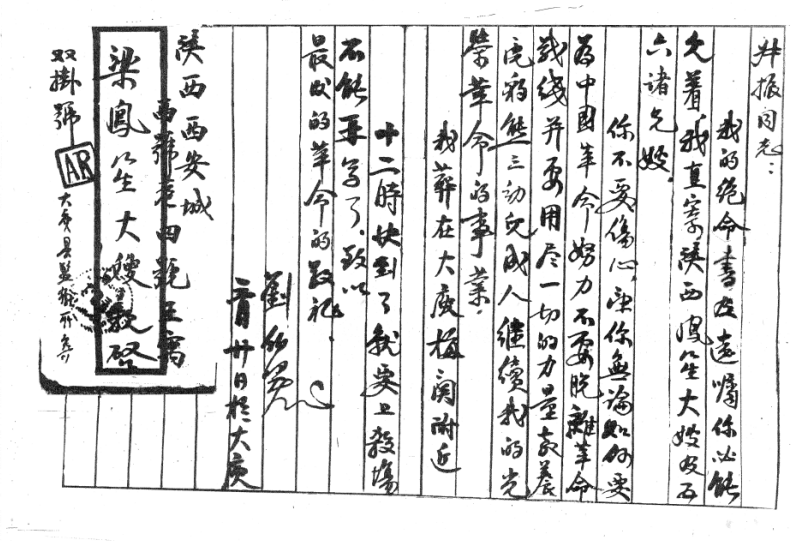 叔振同志：
我的绝命书及遗嘱你必能
见着，我直寄陕西凤笙大嫂及五
六诸兄嫂。
你不要伤心，望你无论如何要
為中國革命努力不要脱離革命
战线并要用尽一切的力量教养
虎豹熊三幼儿成人继续我的光
荣革命的事業。
我葬在大庾梅関附近
十二時快到了就要上殺場
不能再写了，致以
最後的革命的敬礼。
劉伯坚
三月廿日於大庾
陕西西安城
西號巷四號王寓
梁鳳笙大嫂敬啓
双掛號
AR
大庾县監獄所寄